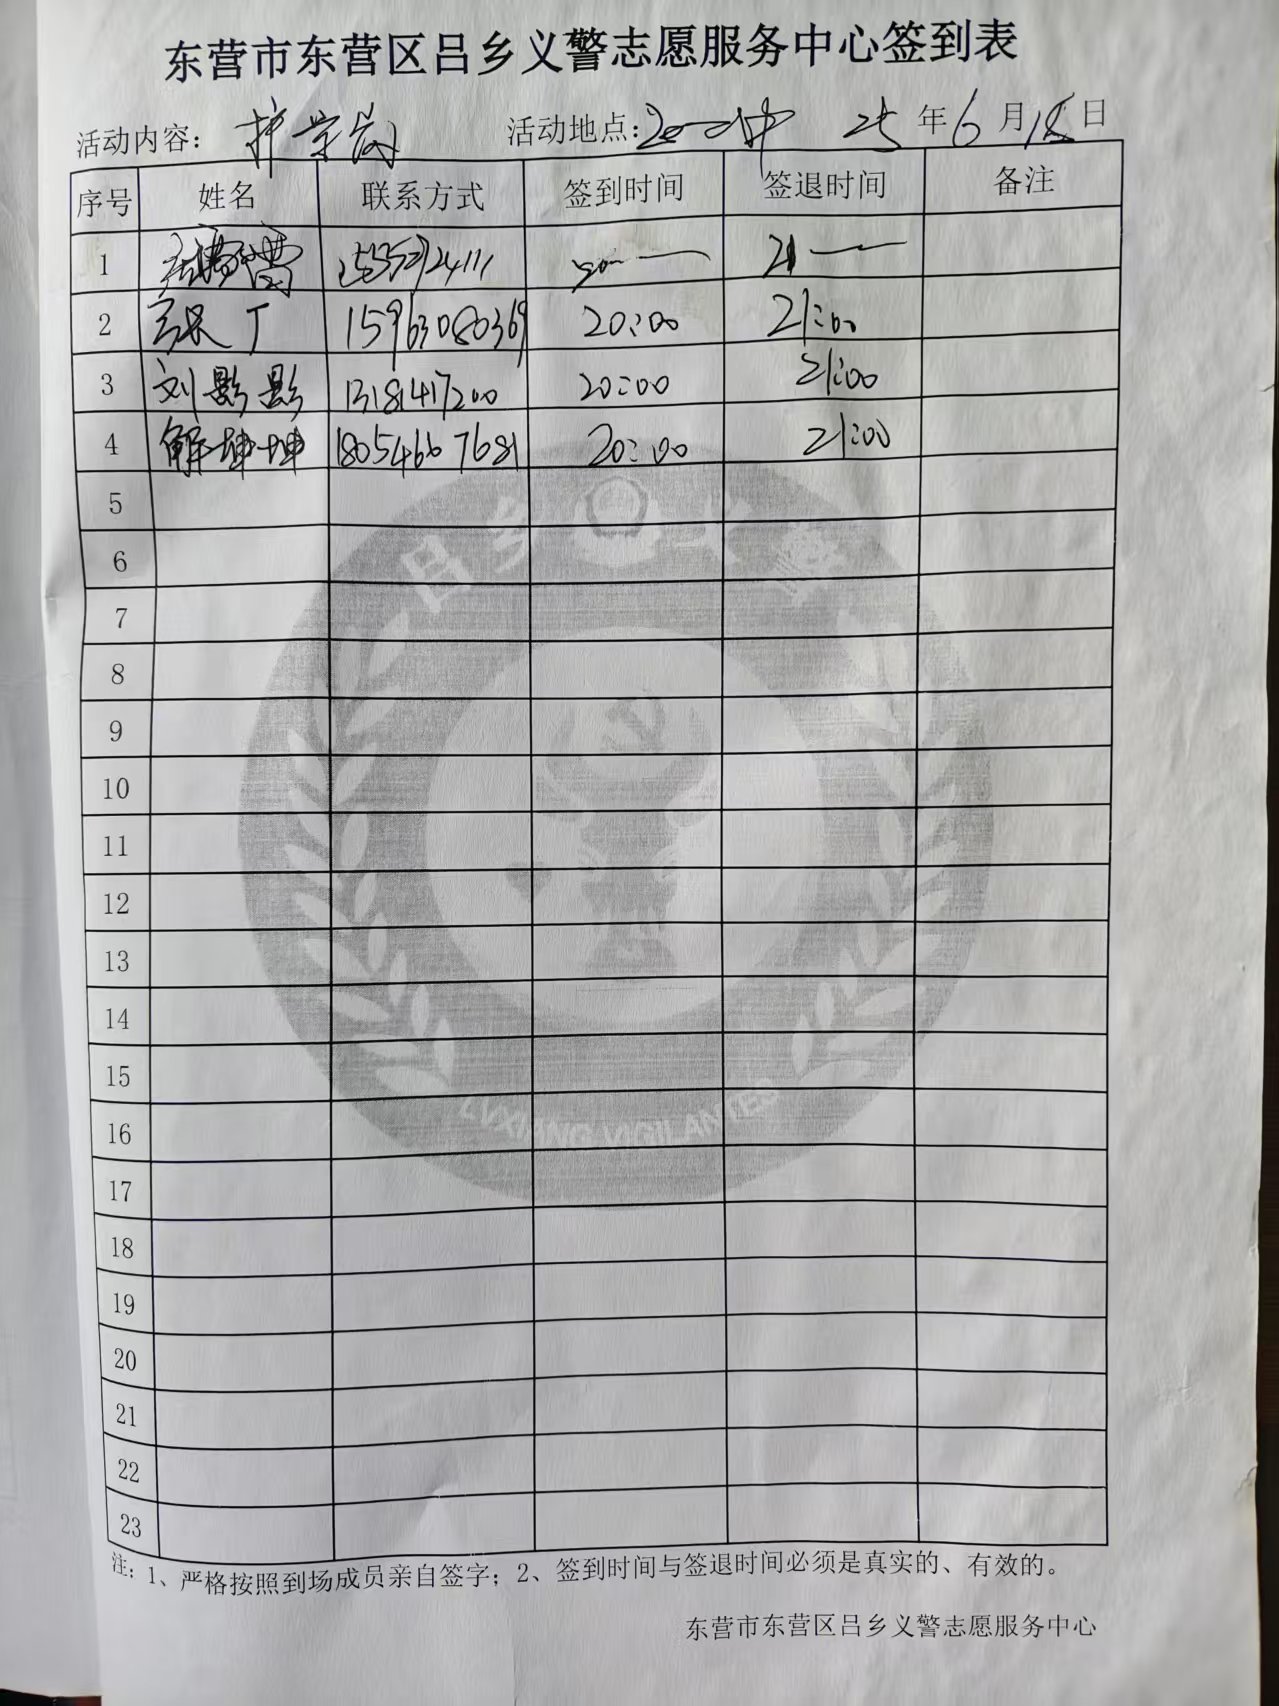 东营市东营区吕乡义警志愿服务中心签到表
活动内容: 护学岗 活动地点: 25年6月18日
序号 姓名 联系方式 签到时间 签退时间 备注
1 21
2 15963080369 20:00 21:00
3 刘影影 13181417200 20:00 21:00
4 解坤坤 18054667681 20:00 21:00
5
6
7
8
9
10
11
12
13
14
15
16
17
18
19
20
21
22
23
吕乡义警
LVXIANG VIGILANTES
注: 1、严格按照到场成员亲自签字; 2、签到时间与签退时间必须是真实的、有效的。
东营市东营区吕乡义警志愿服务中心